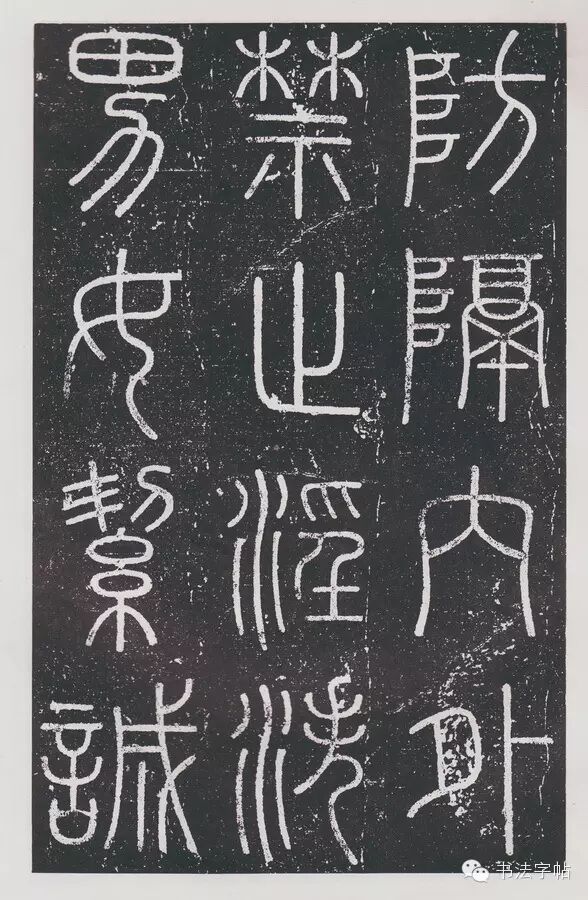 防隔内外
禁止淫泆
男女絜誠
书法字帖